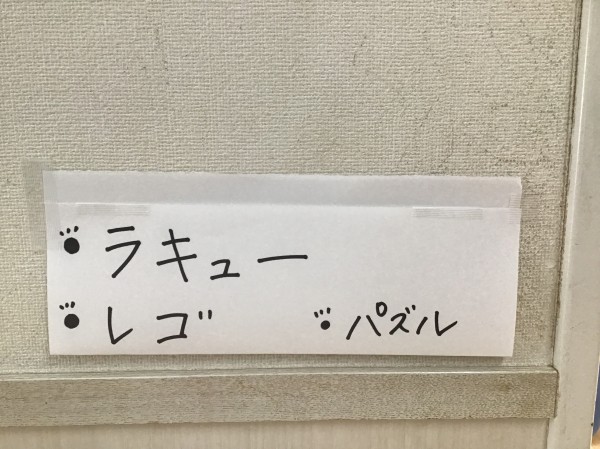 ・ラキュー
・レゴ ・パズル